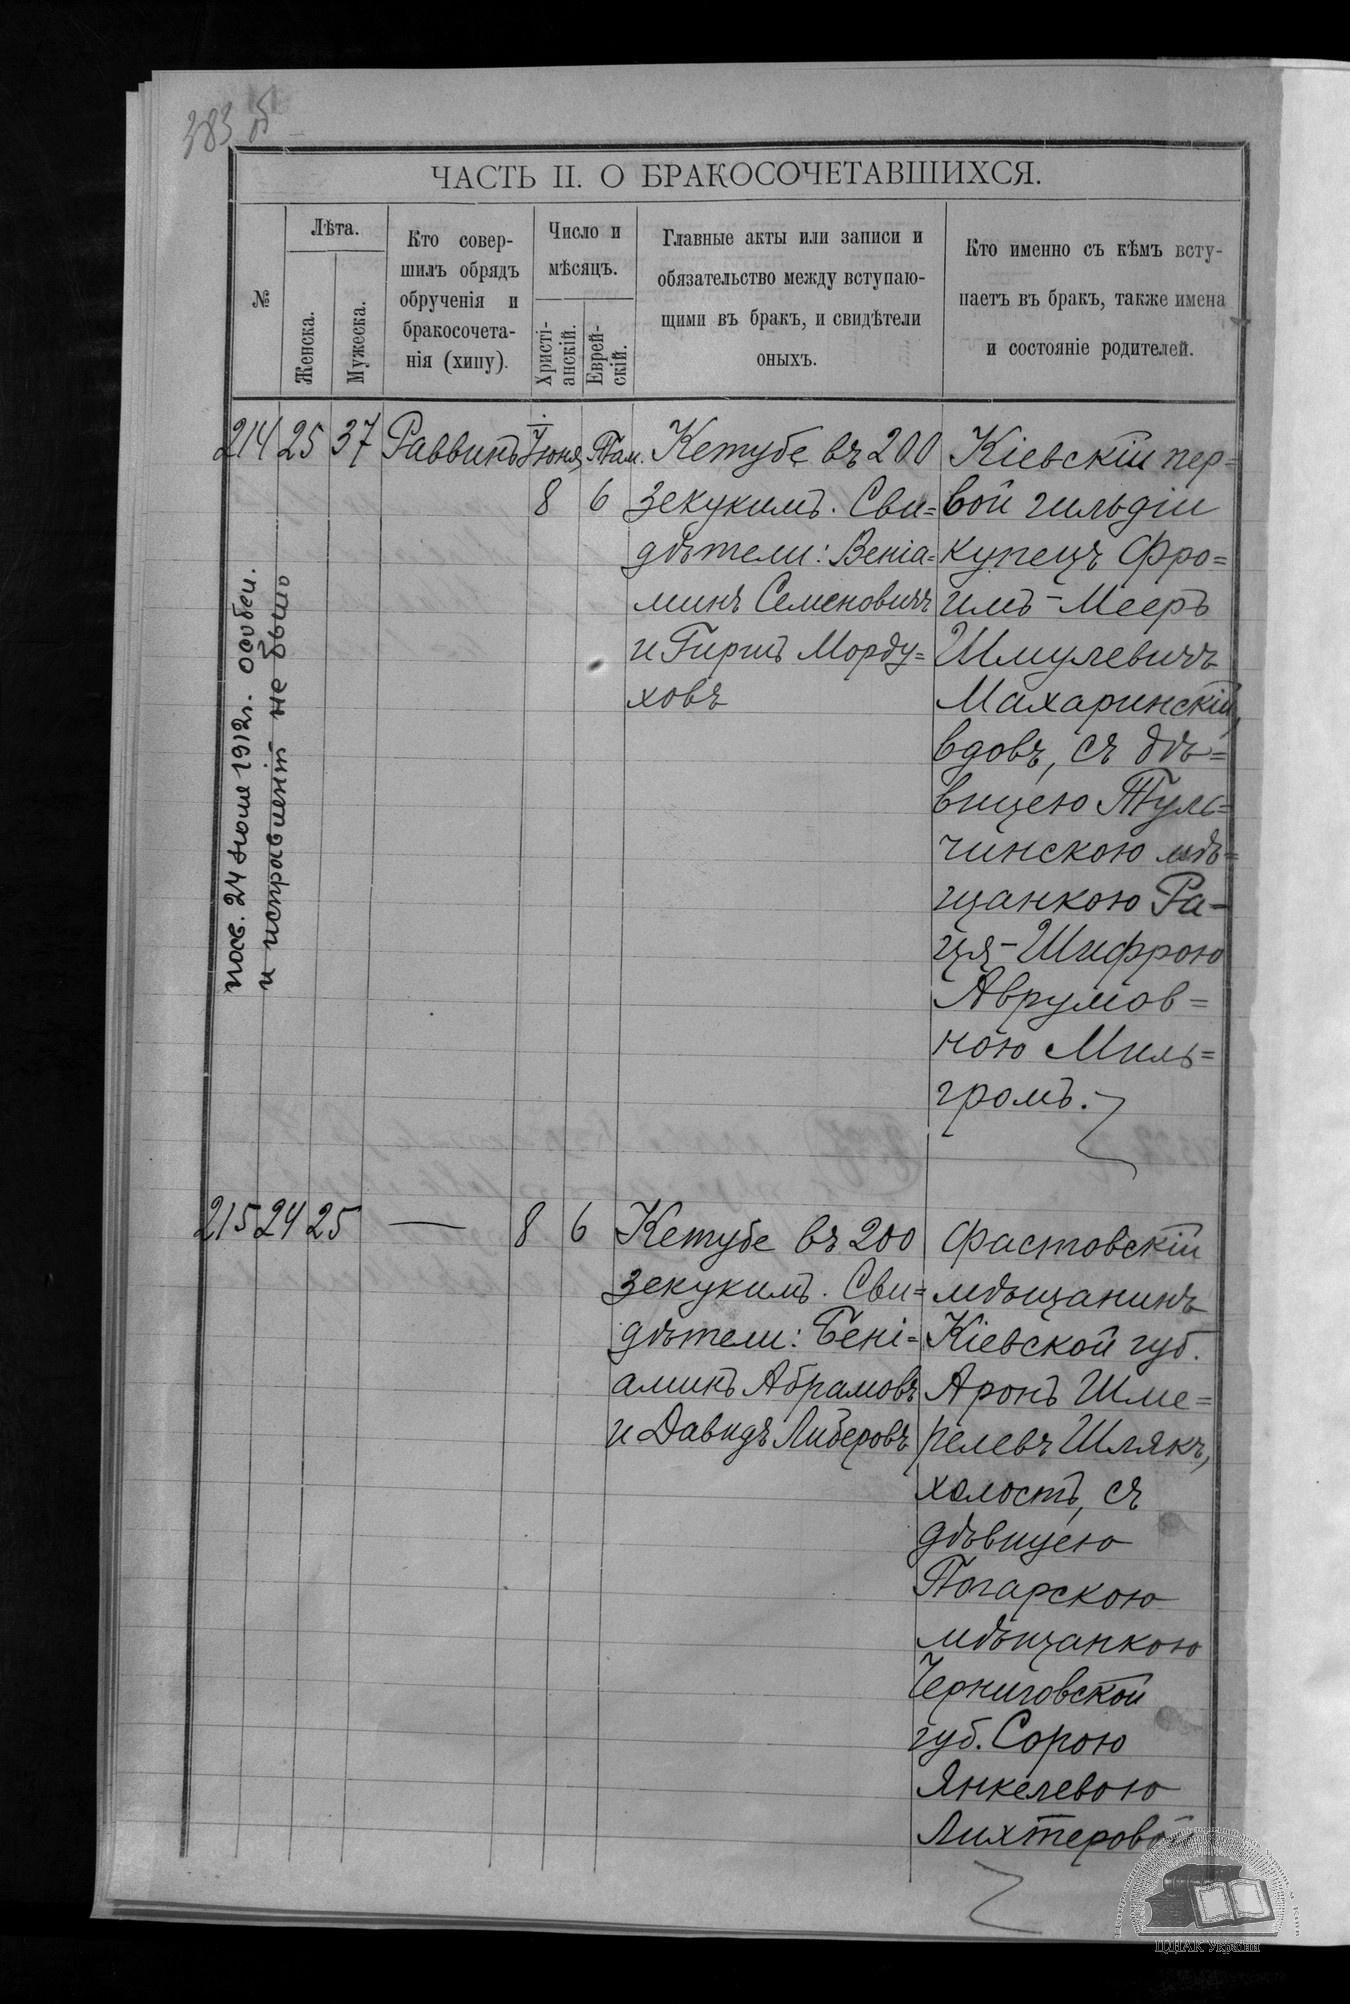 383 об
ЧАСТЬ II. О БРАКОСОЧЕТАВШИХСЯ.
№
Лѣта.
Женска.
Мужеска.
Кто совер-
шилъ обрядъ
обрученія и
бракосочета-
нія (хипу).
Число и
мѣсяцъ.
Христі-
анскій.
Еврей-
скій.
Главные акты или записи и
обязательство между вступаю-
щими въ бракъ, и свидѣтели
оныхъ.
Кто именно съ кѣмъ всту-
паетъ въ бракъ, также имена
и состояніе родителей.
214 25 37 Раввинъ Іюня Там.
8 6
Кетубе въ 200
зекукимъ. Сви=
дѣтели: Веніа=
минъ Семеновичъ
и Гиршъ Морду=
ховъ
Кіевскій пер=
вой гильдіи
купецъ Фро=
имъ-Мееръ
Шмулевичъ
Махаринскій,
вдовъ, съ дѣ=
вицею Туль=
чинскою мѣ=
щанкою Ра-
ця-Шифрою
Аврумов=
ною Миль=
громъ.
пасв. 24 июля 1912г. особен.
и исправлент не было
215 24 25 — 8 6
Кетубе въ 200
зекукимъ. Сви=
дѣтели: Бені=
аминъ Абрамовъ
и Давидъ Либеровъ
Фастовскій
мѣщанинъ
Кіевской губ.
Аронъ Шме=
релевъ Шлякъ,
холостъ, съ
дѣвицею
Погарскою
мѣщанкою
Черниговской
губ. Сорою
Янкелевою
Лихтеровой
ЦДІАК України